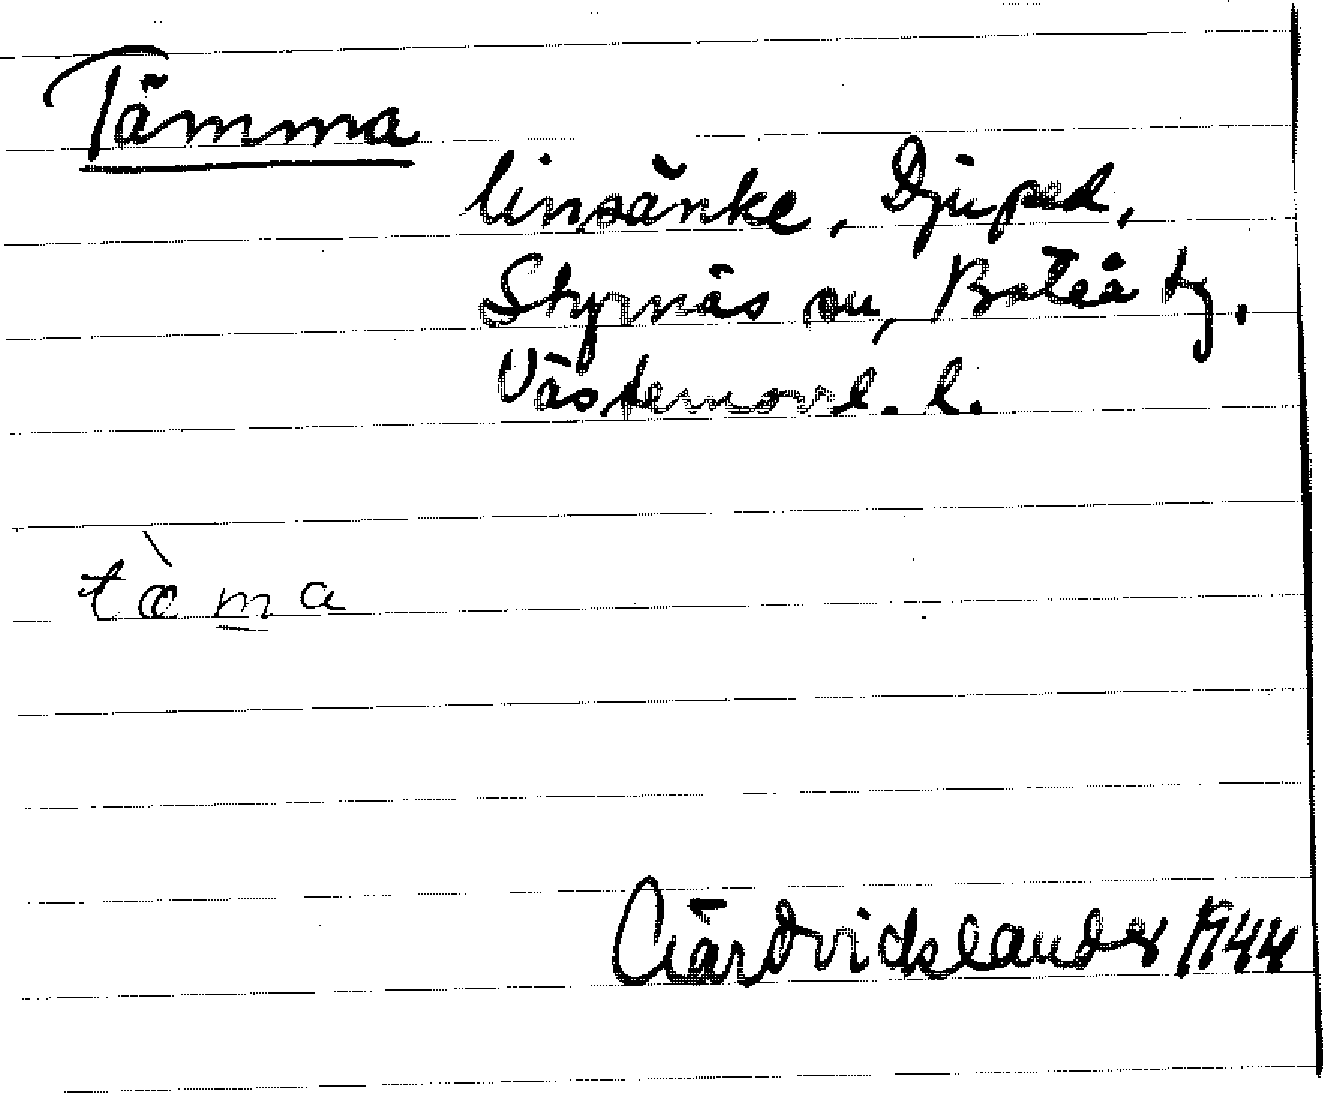 Tämma
linsänke, Djuped,
Styrnäs sn, Boteå tg.
Västernorrl. l.
tæ̀ma
Gärd Vicklander 1944